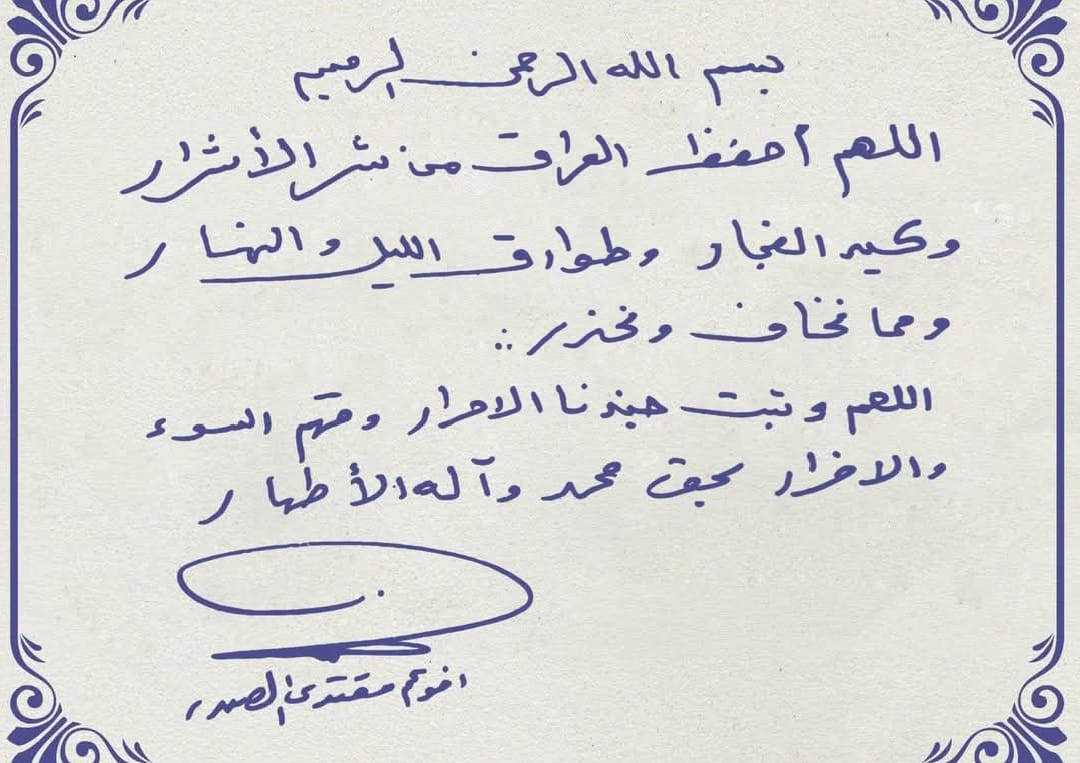 بسم الله الرحمن الرحيم
اللهم أحفظ العراق من شر الأشرار
وكيد الفجار وطوارق الليل والنهار
ومما نخاف ونحذر ..
اللهم وثبت جندنا الاحرار وقهم السوء
والاضرار بحق محمد وآله الأطهار
اخوكم مقتدى الصدر